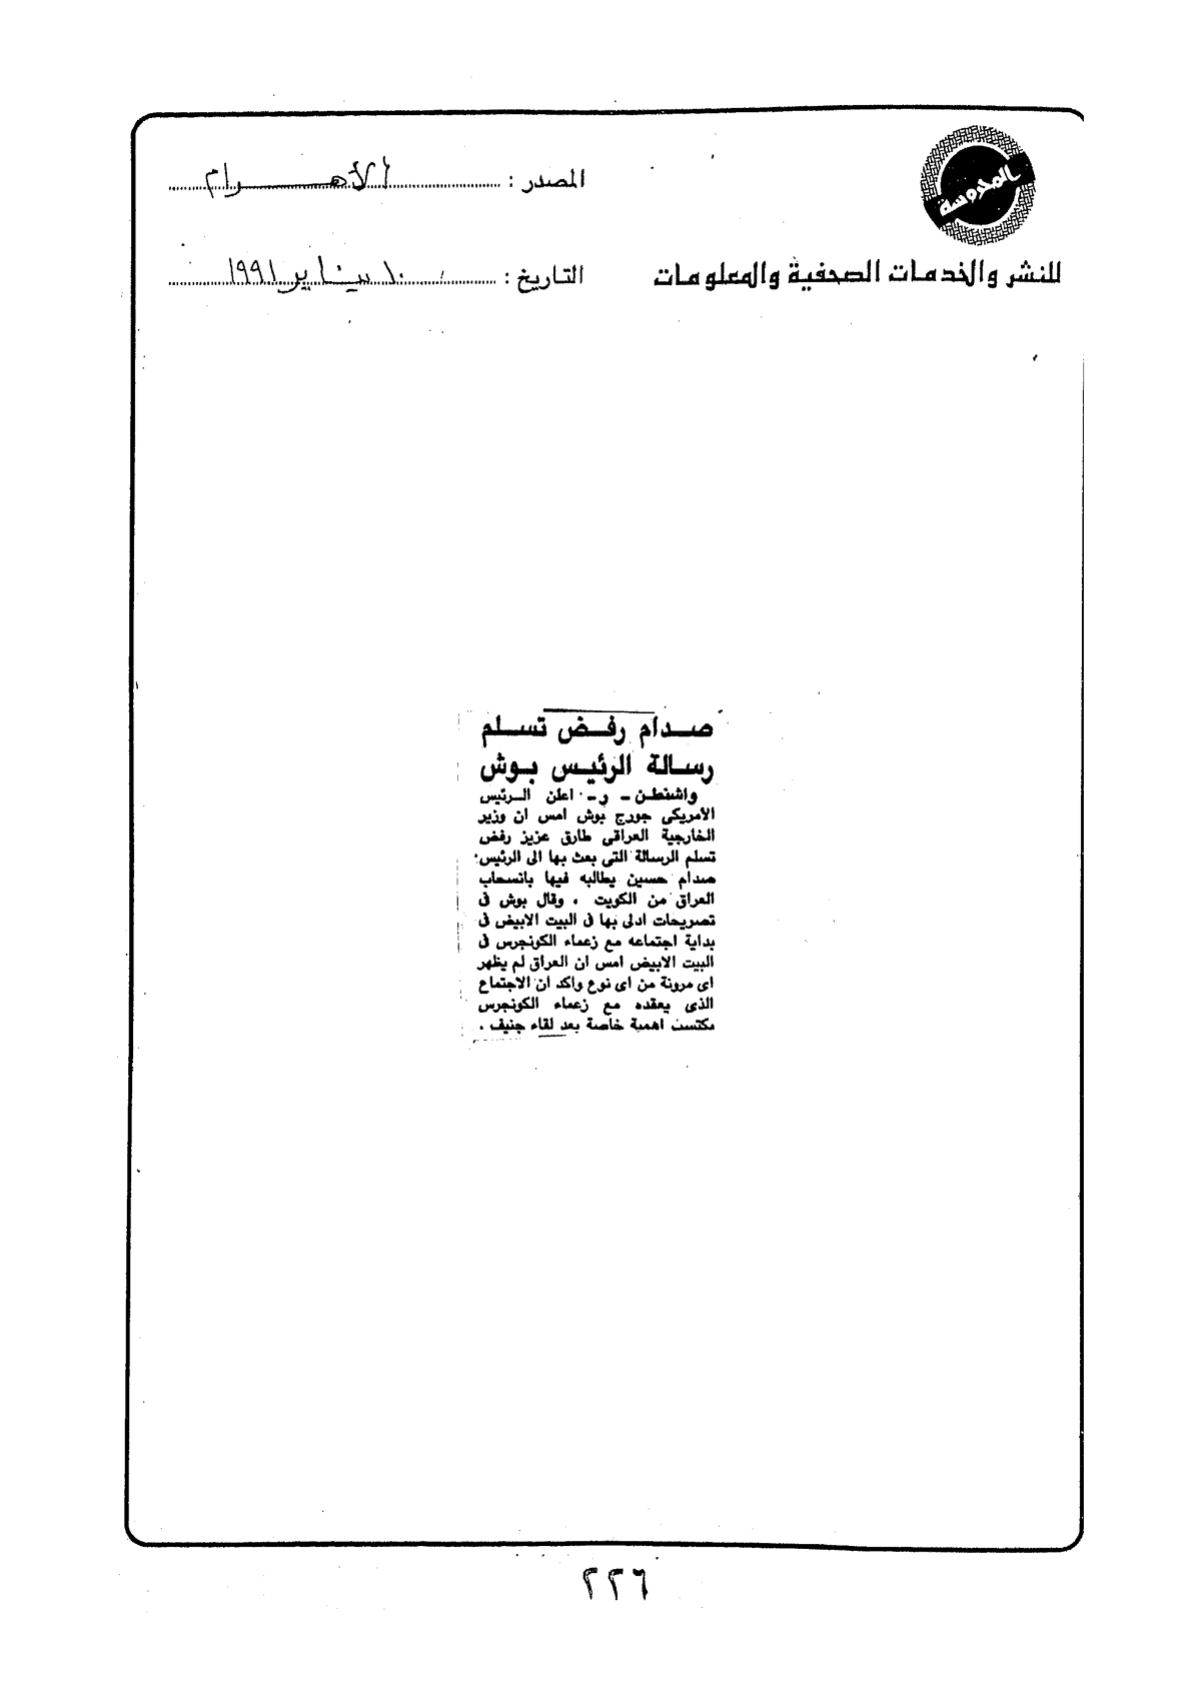 المحروسة
للنشر والخدمات الصحفية والمعلومات
المصدر : الأهـــرام
التاريخ : ١٠ يناير ١٩٩١
صــدام رفــض تســلم
رســالة الرئيــس بــوش
واشنطــن ــ ر ــ اعلن الــرئيس
الأمريكى جورج بوش امس ان وزير
الخارجية العراقى طارق عزيز رفض
تسلم الرسالة التى بعث بها الى الرئيس
صدام حسين يطالبه فيها بانسحاب
العراق من الكويت . وقال بوش فى
تصريحات ادلى بها فى البيت الابيض فى
بداية اجتماعه مع زعماء الكونجرس فى
البيت الابيض امس ان العراق لم يظهر
اى مرونة من اى نوع واكد ان الاجتماع
الذى يعقده مع زعماء الكونجرس
يكتسب اهمية خاصة بعد لقاء جنيف .
٢٢٦